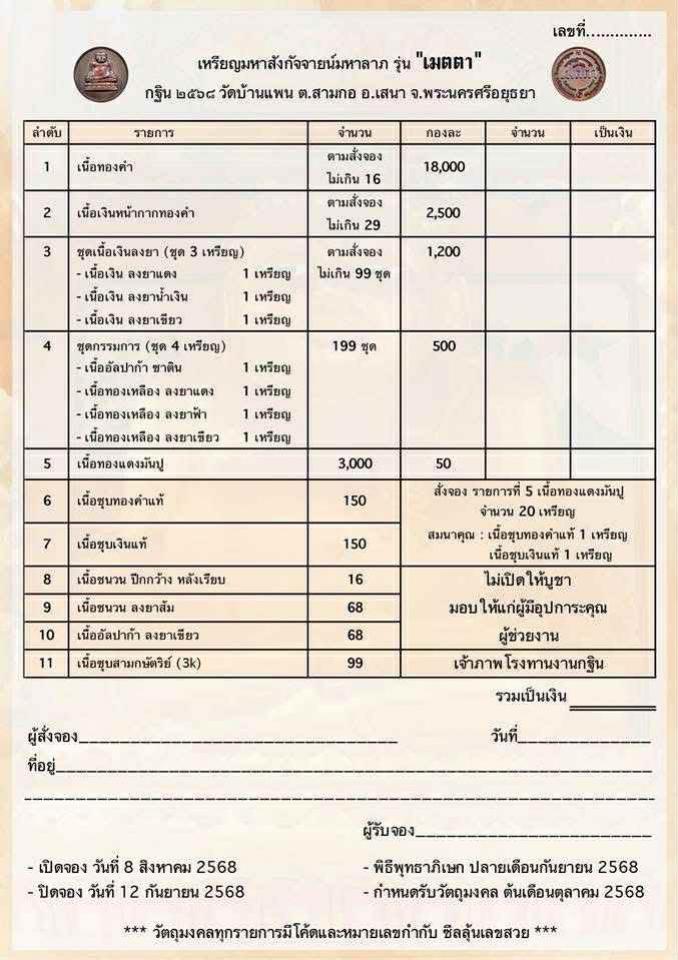 เลขที่..............
เหรียญมหาสังกัจจายน์มหาลาภ รุ่น "เมตตา"
กฐิน ๒๕๖๘ วัดบ้านแพน ต.สามกอ อ.เสนา จ.พระนครศรีอยุธยา
ลำดับ รายการ จำนวน กองละ จำนวน เป็นเงิน
1 เนื้อทองคำ ตามสั่งจอง ไม่เกิน 16 18,000
2 เนื้อเงินหน้ากากทองคำ ตามสั่งจอง ไม่เกิน 29 2,500
3 ชุดเนื้อเงินลงยา (ชุด 3 เหรียญ) ตามสั่งจอง 1,200
- เนื้อเงิน ลงยาแดง 1 เหรียญ ไม่เกิน 99 ชุด
- เนื้อเงิน ลงยาน้ำเงิน 1 เหรียญ
- เนื้อเงิน ลงยาเขียว 1 เหรียญ
4 ชุดกรรมการ (ชุด 4 เหรียญ) 199 ชุด 500
- เนื้ออัลปาก้า ชาติน 1 เหรียญ
- เนื้อทองเหลือง ลงยาแดง 1 เหรียญ
- เนื้อทองเหลือง ลงยาฟ้า 1 เหรียญ
- เนื้อทองเหลือง ลงยาเขียว 1 เหรียญ
5 เนื้อทองแดงมันปู 3,000 50
6 เนื้อชุบทองคำแท้ 150
7 เนื้อชุบเงินแท้ 150
สั่งจอง รายการที่ 5 เนื้อทองแดงมันปู
จำนวน 20 เหรียญ
สมนาคุณ : เนื้อชุบทองคำแท้ 1 เหรียญ
เนื้อชุบเงินแท้ 1 เหรียญ
8 เนื้อชนวน ปีกกว้าง หลังเรียบ 16 ไม่เปิดให้บูชา
9 เนื้อชนวน ลงยาส้ม 68 มอบให้แก่ผู้มีอุปการะคุณ
10 เนื้ออัลปาก้า ลงยาเขียว 68 ผู้ช่วยงาน
11 เนื้อชุบสามกษัตริย์ (3k) 99 เจ้าภาพโรงทานงานกฐิน
รวมเป็นเงิน
ผู้สั่งจอง วันที่
ที่อยู่
ผู้รับจอง
- เปิดจอง วันที่ 8 สิงหาคม 2568 - พิธีพุทธาภิเษก ปลายเดือนกันยายน 2568
- ปิดจอง วันที่ 12 กันยายน 2568 - กำหนดรับวัตถุมงคล ต้นเดือนตุลาคม 2568
*** วัตถุมงคลทุกรายการมีโค้ดและหมายเลขกำกับ ซีลลุ้นเลขสวย ***